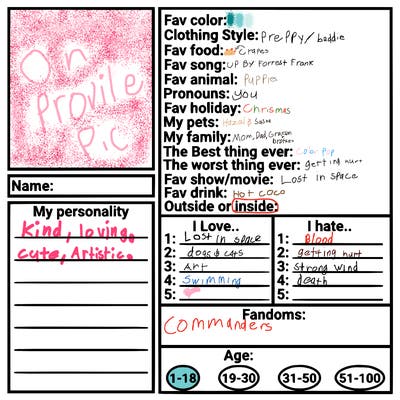 On
Provile
Pic
Name:
My personality
Kind, loving,
cute, Artistic.
Fav color:
Clothing Style: Preppy/baddie
Fav food: Crapes
Fav song: UP BY Forrest Frank
Fav animal: Puppie
Pronouns: you
Fav holiday: Chrismas
My pets: Hazel & Sasha
My family: Mom, Dad, Grayson
brother
The Best thing ever: Color Pop
The worst thing ever: getting hurt
Fav show/movie: Lost in space
Fav drink: Hot coco
Outside or inside:
I Love..
1: Lost in space
2: dogs & cats
3: Art
4: Swimming
5:
I hate..
1: Blood
2: getting hurt
3: strong wind
4: death
5:
Fandoms:
Commanders
Age:
1-18 19-30 31-50 51-100